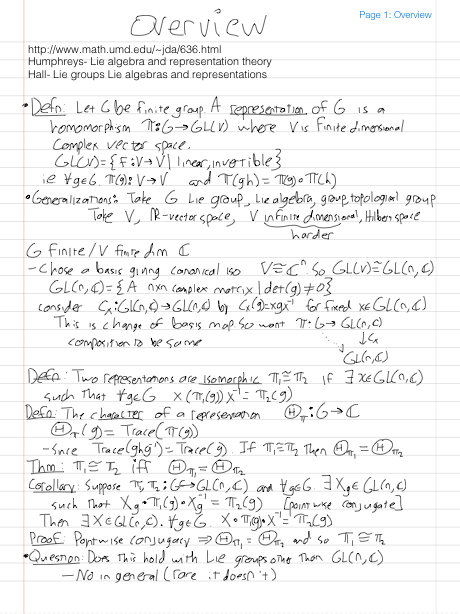 Page 1: Overview
Overview
http://www.math.umd.edu/~jda/636.html
Humphreys- Lie algebra and representation theory
Hall- Lie groups Lie algebras and representations
• Defn: Let G be finite group. A representation of G is a
homomorphism π: G→GL(V) where V is finite dimensional
Complex vector space.
GL(V)={f:V→V| linear, invertible}
i.e ∀g∈G. π(g): V→V and π(gh)=π(g)∘π(h)
• Generalizations: Take G Lie group, Lie algebra, group, topological group
Take V, ℝ-vector space, V infinite dimensional, Hilbert space
harder
G finite/V finite dim ℂ
- Chose a basis giving canonical iso V≅ℂⁿ. So GL(V)≅GL(n,ℂ)
GL(n,ℂ)={A n×n complex matrix | det(g)≠0}
consider Cₓ: GL(n,ℂ)→GL(n,ℂ) by Cₓ(g)=xgx⁻¹ for fixed x∈GL(n,ℂ)
This is change of basis map. So want π: G→GL(n,ℂ)
composition to be same ↓Cₓ
GL(n,ℂ)
Defn: Two representations are isomorphic π₁≅π₂ if ∃x∈GL(n,ℂ)
such that ∀g∈G x(π₁(g))x⁻¹=π₂(g)
Defn: The character of a representation Θ_π: G→ℂ
Θ_π(g)=Trace(π(g))
- Since Trace(ghg⁻¹)=Trace(g). If π₁≅π₂ then Θ_π₁=Θ_π₂
Thm: π₁≅π₂ iff Θ_π₁=Θ_π₂
Corollary: Suppose π₁,π₂: G→GL(n,ℂ) and ∀g∈G. ∃X_g∈GL(n,ℂ)
such that X_g∘π₁(g)∘X_g⁻¹=π₂(g) [pointwise conjugate]
Then ∃X∈GL(n,ℂ). ∀g∈G. X∘π₁(g)∘X⁻¹=π₂(g)
Proof: Pointwise conjugacy ⇒ Θ_π₁=Θ_π₂ and so π₁≅π₂
• Question: Does this hold with Lie groups other than GL(n,ℂ)
- No in general (rare it doesn't)